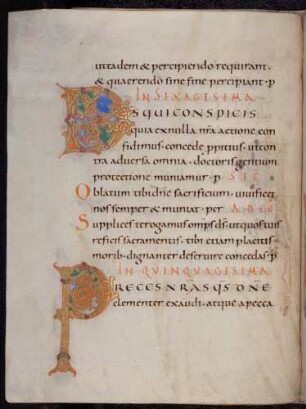 uttadem & percipiendo requirant.
& quaerendo sine fine percipiant. p
IN SIXAGISIMA
DS QUI CONSPICIS
quia ex nulla nra actione con
fidimus. concede ppitius. ut con
tra adversa omnia. doctoris gentium
protectione muniamur. p SEC
Oblatum tibi dne sacrificium. vivificet
nos semper & muniat. per AD CO
Supplices te rogamus omps ds. ut quos tuis
reficis sacramentis. tibi etiam placitis
morib. dignanter deservire concedas. p
IN QUINQUAGISIMA
PRECES NRAS QS DNE
clementer exaudi. atque a pecca